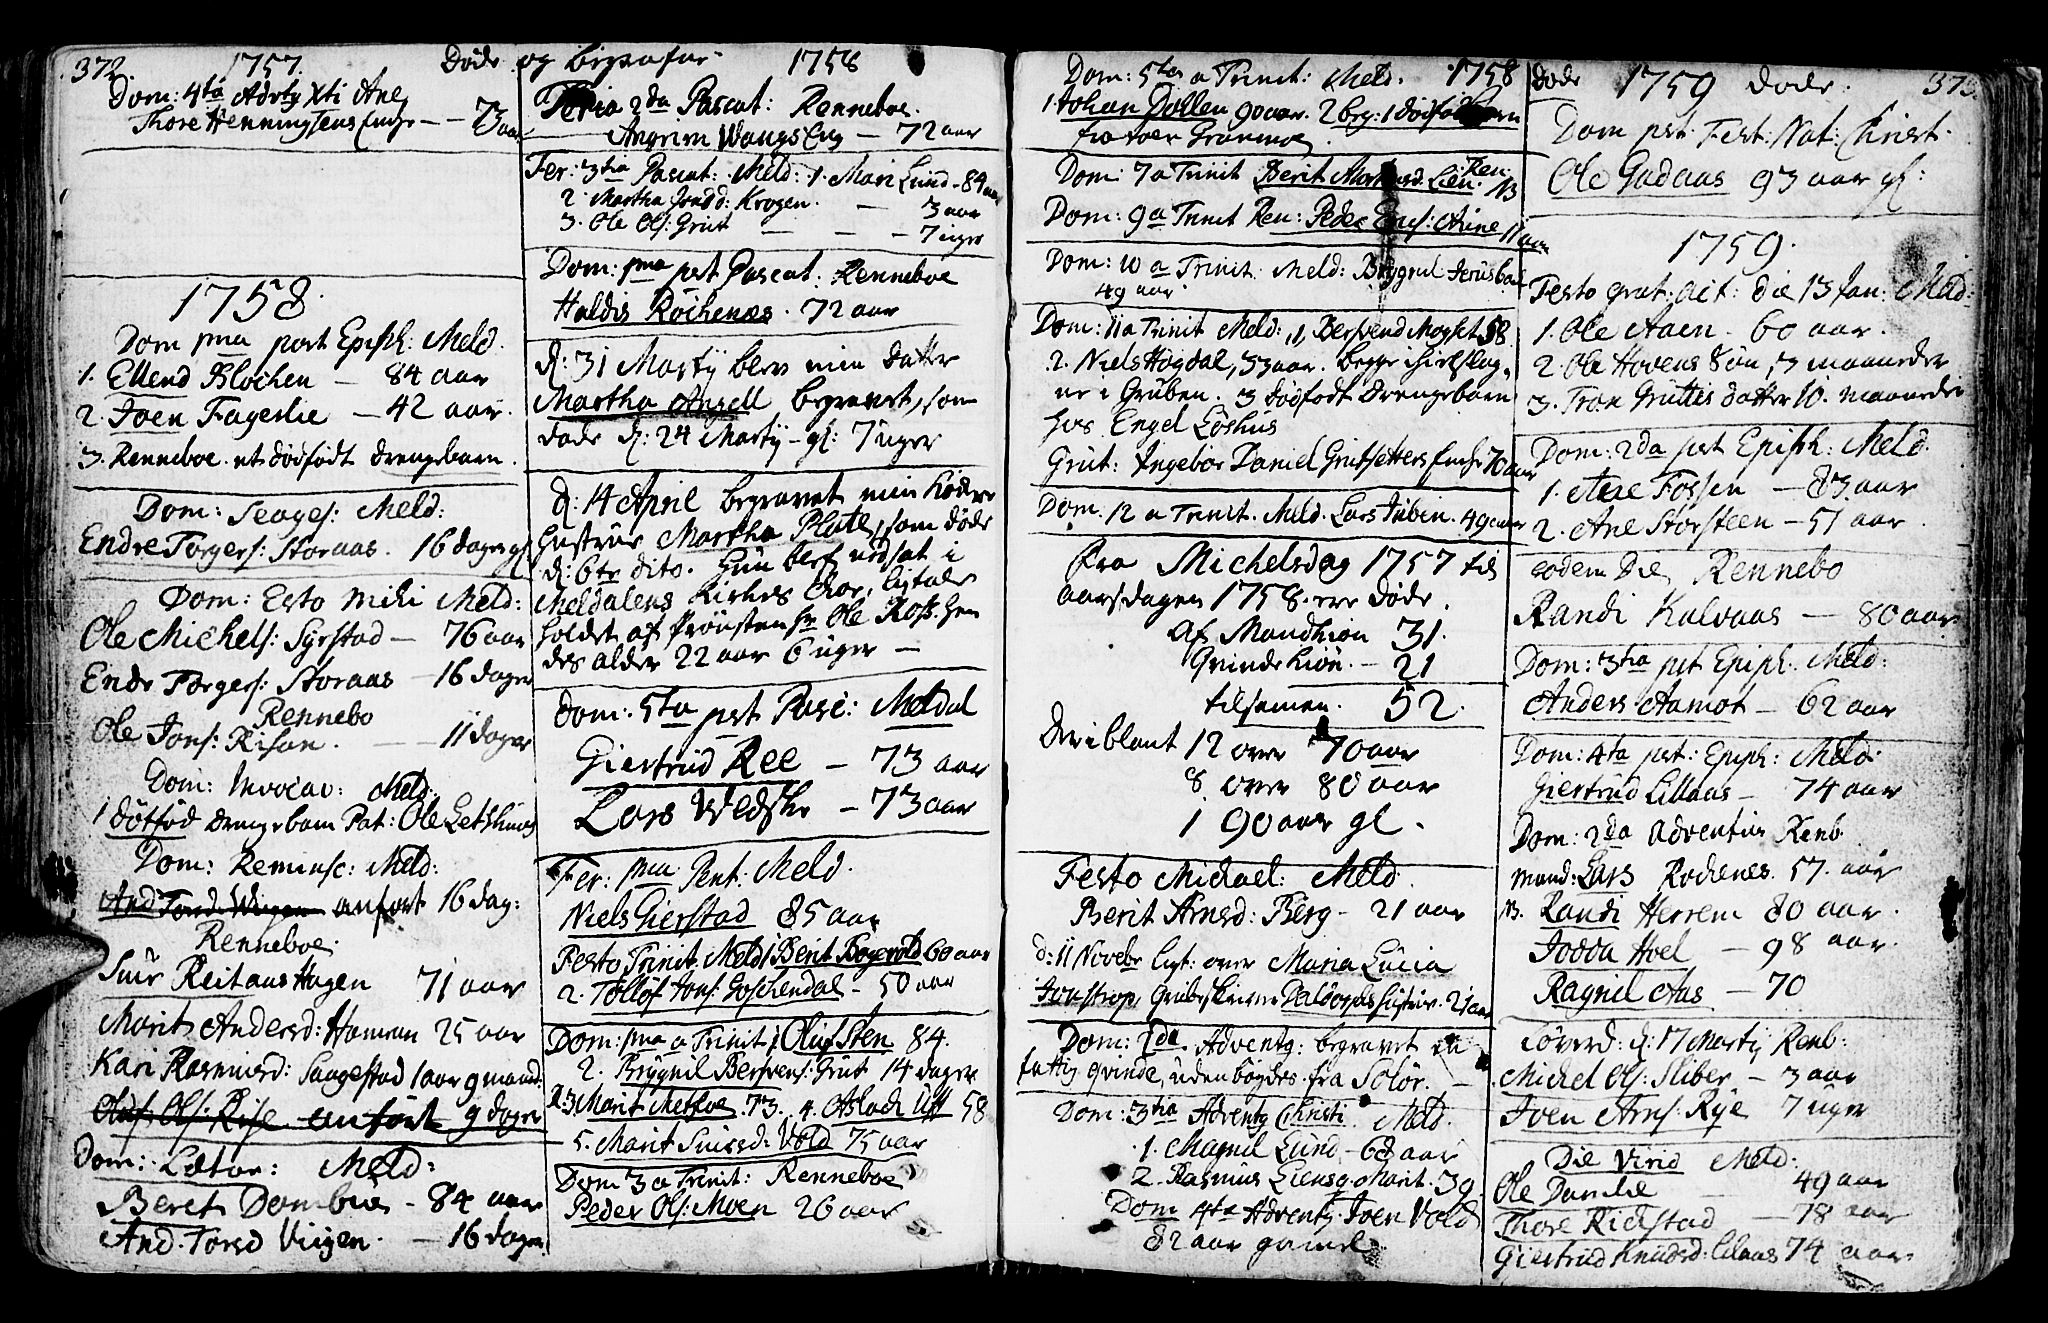 372. 1757. Døde og begrafne 1758
Dom: 4ta Advtg Xti Ane
Thore Henningsens Enche — 73 aar
1758.
Dom pma post Epiph: Meld.
1. Ellend Blochen — 84 aar
2. Joen Fagerlie — 42 aar.
3. Renneboe et dødfødt drengebarn.
Dom: Seages: Meld:
Endre Torgers: Storaas. 16 dager gl
Dom: Esto Mihi Meld:
Ole Michels: Syrstad — 76 aar
Endr Torgers: Storaas — 16 dager
Rennebo
Ole Jons: Risan. — 11 dager
Dom: Invocav: Meld:
1 døtfød drengebarn Pat: Ole Letshuus
Dom: Reminsc: Meld:
And Torsd. Wiigen anført 16 dag:
Renneboe.
Siur Reitans Hagen 71 aar
Marit Andersd: Haman 25 aar
Kari Rasmusd: Saugestad 1 aar 9 maand:
Oluf Ols: Rise anført 9 dager
Dom: Lætar: Meld:
Beret Dombue — 84 aar
And. Torsd Viigen. — 16 dager
Feria 2da Pascat: Renneboe.
Angrim Wangs Eng — 72 aar
Fer: 3tia Pascat: Meld: 1. Mari Lund — 84 aar
2. Martha d: Krogen. — 3 aar
3. Ole Ols: Grut — 7 uger
Dom: pma pst Pascat: Renneboe
Haldis Rochenes. 72 aar
d: 31 Martij blev min datter
Martha Angell begravet, som
døde d: 24 Martij — gl: 7 uger
d: 14 April begravet min kiære
Hustrue Martha Plate, som døde
d: 6te dito. Hun blef nedsat i
Meldalens Kirkes Chor, ligtale
holdet af Prousten Hr Ole Ross. Hen
des alder 22 aar 6 uger —
Dom: 5ta pst Pasc: Meldal
Giertrud Ree — 73 aar
Lars — 73 aar
Fer: pma Pent: Meld.
Niels Gierstad 85 aar
Festo Trinit. Meld 1 Berit Bogevold 60 aar
2. Tollof Jons: Goschendal — 50 aar
Dom: pma a Trinit 1 Oluf Sten 84.
2. Brygnil Bersvens: Grut 14 dager
3 Marit Metloe 73. 4. Aslach Uff 58
5. Marit Siursd: Vold 75 aar
Dom 3 a Trinit: Renneboe
Peder Ols: Moen 26 aar
Dom: 5ta a Trinit: Meld. 1758
1. Johan Dallen 90 aar. 2 beg: 1 dødfød
fra
Dom: 7 a Trinit Berit Lien. Ren. NB
Dom: 9 a Trinit Ren: Peder Arine 11 aar
Dom: 10 a Trinit: Meld: Brygnil
49 aar
Dom: 11 a Trinit Meld: 1, Bersvend Mogset 58.
2. Niels Hogdal, 53 aar. begge
ne i Gruben. 3 dødfødt drengebarn
hos Engel Løshus
Grut: Ingebor Daniel Grutsetters Enche 70 aar
Dom: 12 a Trinit. Meld. Lars Jubin. 49 aar
Fra Michelsdag 1757 til
aarsdagen 1758. ere døde.
Af Mandkiøn 31.
Qvindekiøn. — 21
tilsamen. 52.
Deriblant 12 over 70 aar
8 over 80 aar
1 90 aar gl.
Festo Michael: Meld.
Berit Arnsd: Berg — 21 aar
d: 11 Novebr ligt: over Maria Lucia
Jonstrop, Grubeskriver Daldorphs Hustrue. 21 aar
Dom: 2da Adventg: begravet en
fattig qvinde, uden bøgdes. fra Solør. —
Dom: 3tia Adventg Christi Meld.
1. Magnil Lund — 68 aar
2. Rasmus Liens q. Marit. 39.
Dom 4ta Adventg. Joen Vold
82 aar gamel
døde 1759 døde. 373.
Dom pst: Fest: Nat: Christ.
Ole Gadaas 93 aar gl:
1759.
Festo grat: act: die 13 Jan: Meld:
1. Ole Aaen. 60 aar.
2. Ole Hovens Søn, 3 maaneder
3. Tron Gruttis datter 10. maaneder
Dom: 2da pst Epiph: Meld.
1. Ane Fossen — 83 aar
2. Ane Storsteen — 51 aar.
eodem Die Rennebo
Randi Kalvaas — 80 aar
Dom: 3tia pst Epiph: Meld:
Anders Aamot — 62 aar
Dom: 4ta pst: Epiph: Meld:
Giertrud Lillaas — 74 aar
Dom: 2da adventus Renb.
mand: Lars Rochenes. 57. aar
NB. Randi Herrem 80 aar.
Jodda Hoel — 98 aar.
Ragnil Aas — 70
Løverd: d: 17 Martij Renb:
Michel Ols: Sliber — 3 aar
Joen Arns: Rye 7 uger
Die Virid Meld:
Ole Damlie — 49 aar
Thore Rickstad — 78 aar
Giertrud Knudsd: Lilaas 74 aar.